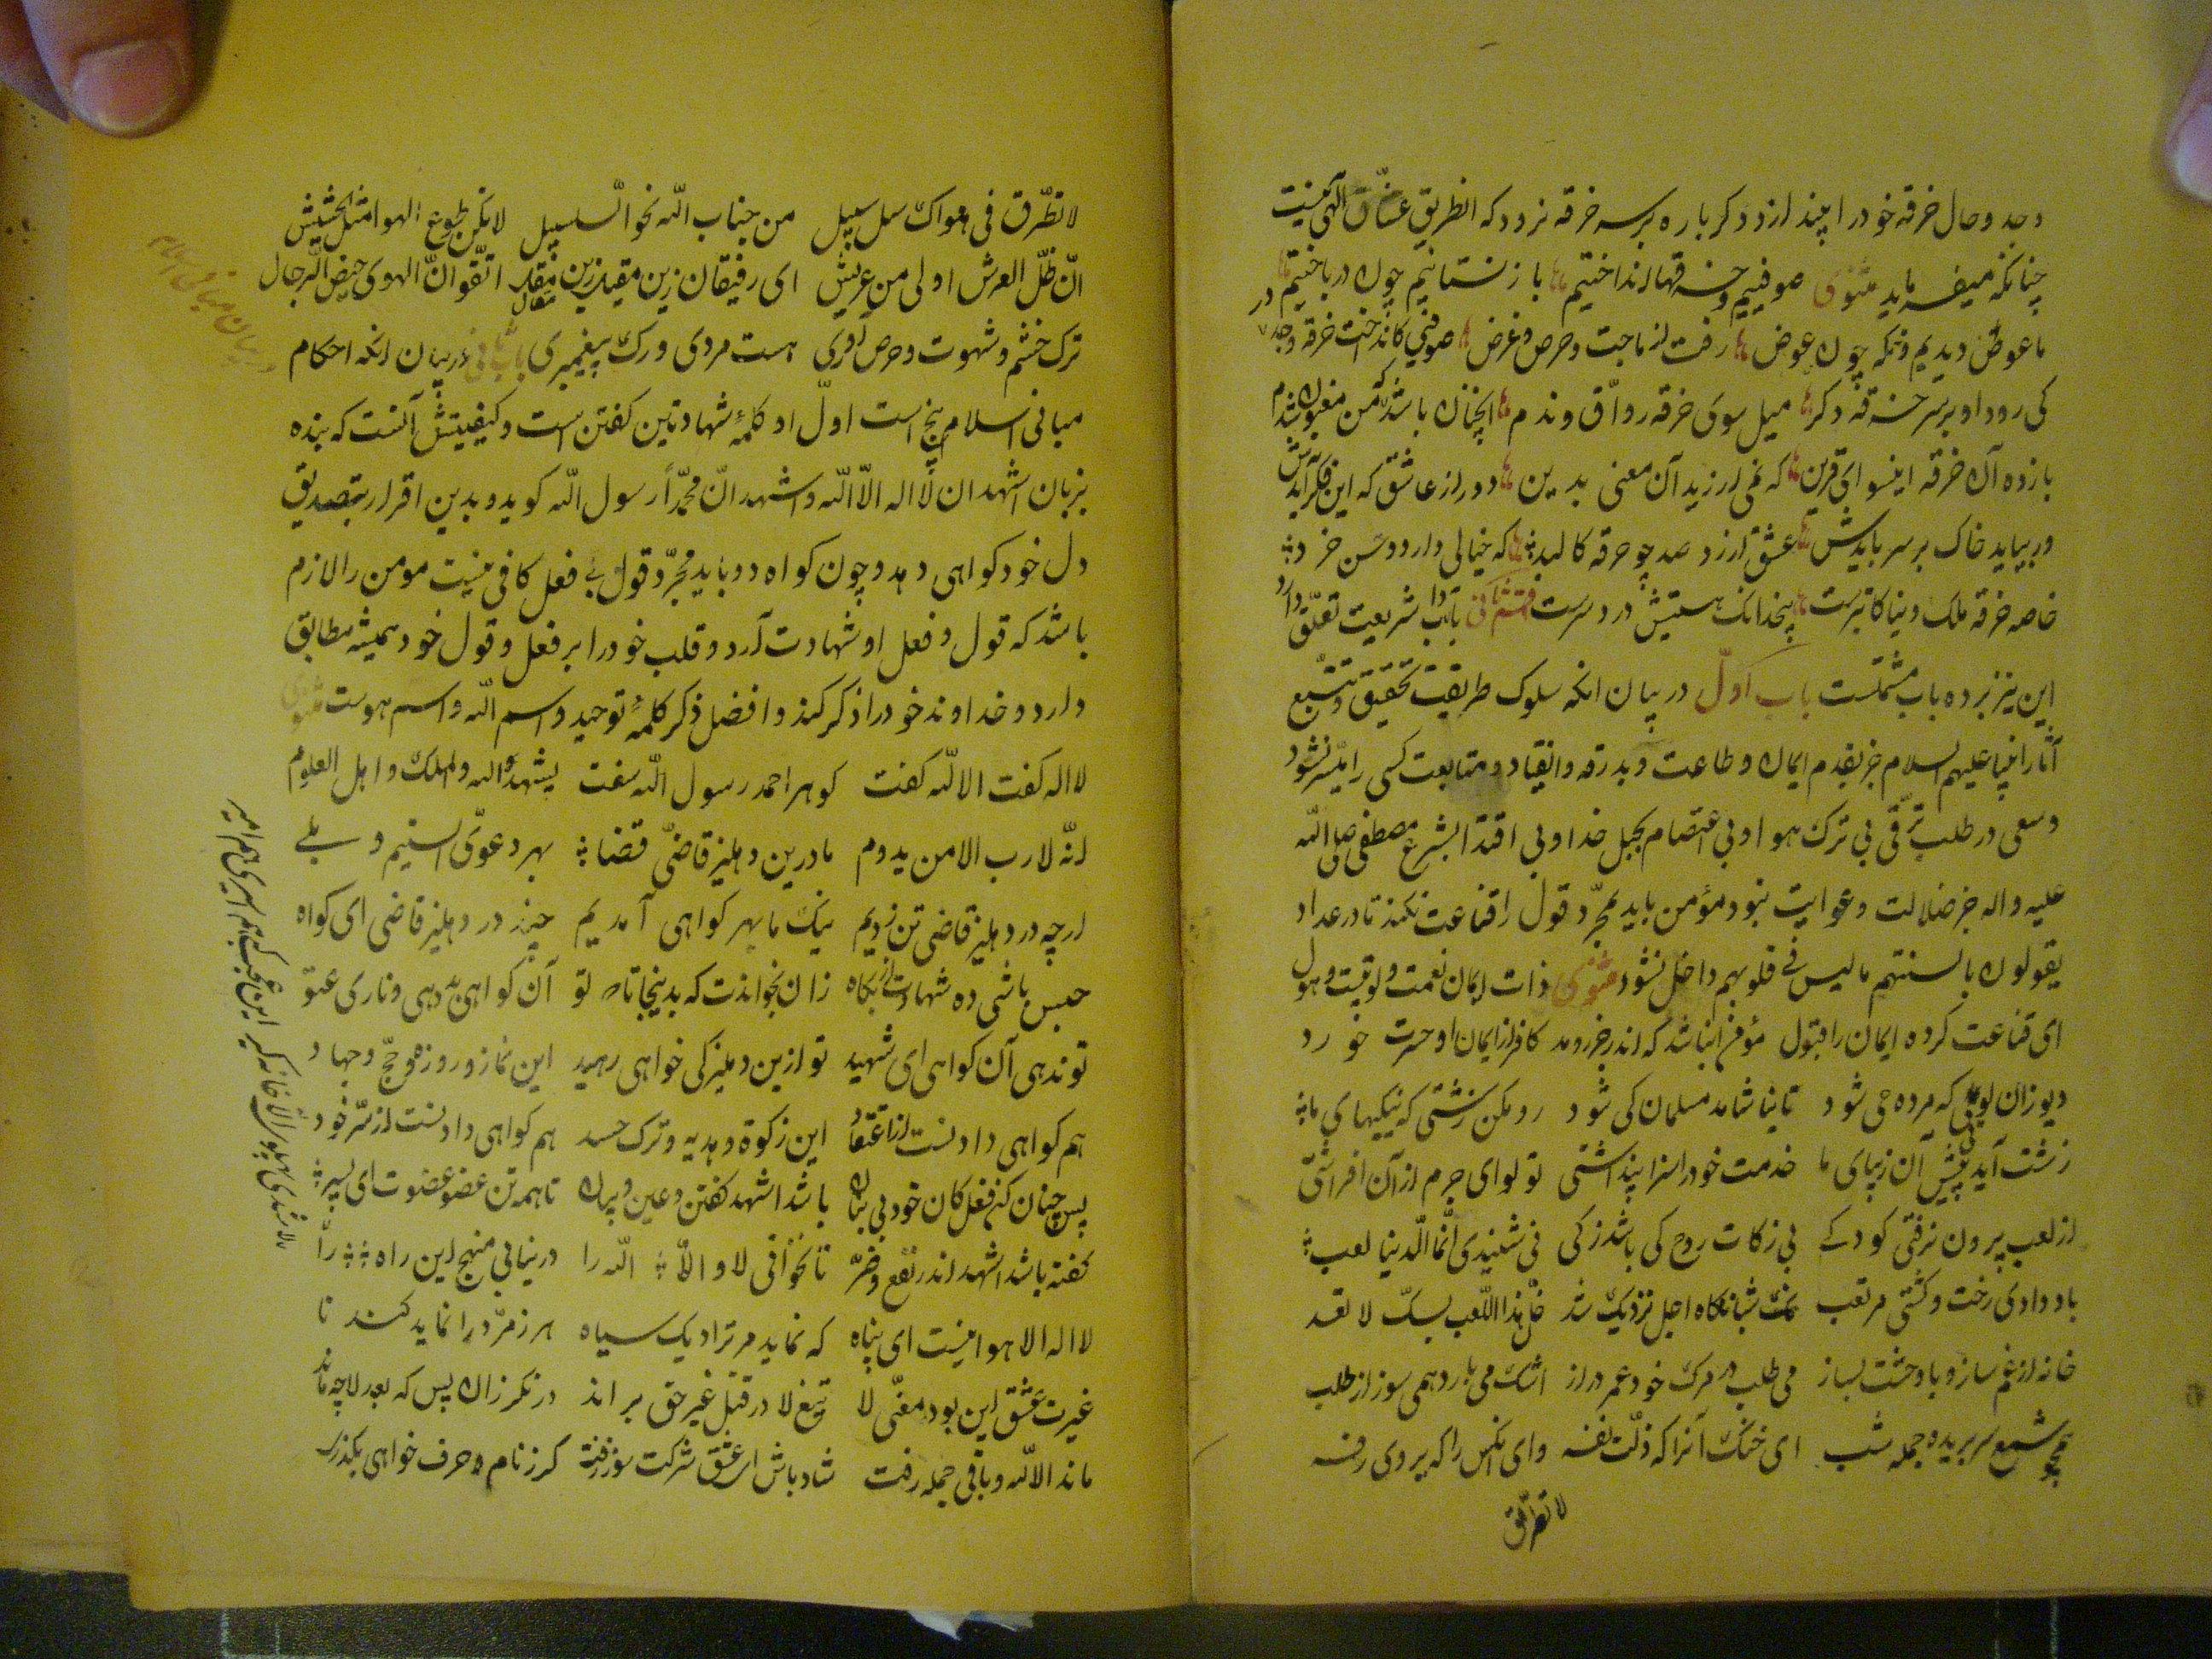 وجد و حال خرقه خود را چند ارزد دکر باره بر سر خرقه نرود که انطریق عشاق الهی نیست
چنانکه میفرماید مثنوی صوفییم و خرقها انداختیم باز نستانیم چون در باختیم
ما عوض دیدیم وانکه چون عوض رفت از ما حاجت و حرص و غرض صوفئی کانداخت خرقه وجد در
کی رود او بر سر خرقه دکر میل سوی خرقه رواق و ندم انچنان باشد که من مغبون شدم
باز ده آن خرقه اینسو ای قرین که نمی ارزید آن معنی بدین دور از عاشق که این فکر آیدش
ور بیاید خاک بر سر بایدش عشق ارزد صد چو خرقه کالبد که خیالی دارد و حس و خرد
خاصه خرقه ملک دنیا کابترست پنج دانک هستیش درد سرست قسم ثانی باداب شریعت تعلق دارد
این نیز بر ده باب مشتملست باب اول در بیان انکه سلوک طریقت تحقیق و تتبع
آثار انبیا علیهم السلام جز بقدم ایمان و طاعت و بدرقه و انقیاد و متابعت کسی را میسر نشود
و سعی در طلب ترقی بی ترک هوا و بی اعتصام بحبل خدا و بی اقتدا بشرع مصطفی صلی الله
علیه واله جز ضلالت و غوایت نبود مؤمن باید بمجرد قول را قناعت نکند تا در عداد
یقولون بالسنتهم ما لیس فی قلوبهم داخل نشود مثنوی ذات ایمان نعمت و لوتیست و هول
ای قناعت کرده ایمان را بقبول مؤمن آن باشد که اندر جزر و مد کافر از ایمان او حسرت خورد
دیو زان لوتی که مرده حی شود تا نیاشامد مسلمان کی شود رو مکن زشتی که نیکیهای ما
زشت آید پیش آن زیبای ما خدمت خود را سزا پنداشتی تو لوای جرم از آن افراشتی
از لعب بیرون نرفتی کودکی بی زکات روح کی باشد زکی نی شنیدی انما الدنیا لعب
باد دادی رخت و کشتی مرتعب نک شبانکاه اجل نزدیک شد خل هذا اللعب بسک لا تعد
خانه از غم ساز و با وحشت بساز می طلب در مرک خود عمر دراز اشک می بار و همی سوز از طلب
همچو شمع سر بریده جمله شب ای خنک آنرا که ذلت نفسه وای انکس را که یردی رفسه
لا تطرق
لا تطرق فی هواک سل سبیل من جناب الله نحو السلسبیل لا تکن طوع الهوا مثل الحشیش
ان ظل العرش اولی من عریش ای رفیقان زین مقیل و زین مقال اتقوا ان الهوی حیض الرجال
ترک خشم و شهوت و حرص آوری هست مردی و رک پیغمبری باب ثانی در بیان انکه احکام
مبانی اسلام پنج است اول او کلمهٔ شهادتین کفتن است و کیفیتش آنست که بنده
بزبان اشهد ان لا اله الا الله و اشهد ان محمدا رسول الله کوید و بدین اقرار بتصدیق
دل خود کواهی دهد و چون کواه دو باید مجرد قول بی فعل کافی نیست مومن را لازم
باشد که قول و فعل او شهادت آرد و قلب خود را بر فعل و قول خود همیشه مطابق
دارد و خداوند خود را ذکر کند و افضل ذکر کلمهٔ توحید و اسم الله و اسم هوست مثنوی
لا اله کفت الا الله کفت کوهر احمد رسول الله سفت یشهد الله والملک و اهل العلوم
انه لا رب الا من یدوم ما درین دهلیز قاضی قضا بهر دعوی الستیم و بلی
ارچه در دهلیز قاضی تن زدیم نیک ما بهر کواهی آمدیم چند در دهلیز قاضی ای کواه
حبس باشی ده شهادت از پکاه زان بخواندت که بدینجا تا تو آن کواهی بدهی و ناری عتو
تو ندهی آن کواهی ای شهید تو ازین دهلیز کی خواهی رهید این نماز و روزه و حج و جهاد
هم کواهی دادنست از اعتقاد این زکوة و هدیه و ترک حسد هم کواهی دادنست از سر خود
پس چنان کن فعل کان خود بی بیان باشد اشهد کفتن و عین و بیان تا همه تن عضو عضوت ای پسر
کفته باشد اشهد اندر نفع و ضر تا نخوانی لا و الا الله را در نیابی منهج این راه را
لا اله الا هو اینست ای پناه که نماید مر ترا دیک سیاه هر زمرد را نماید کندنا
غیرت عشق این بود معنی لا تیغ لا در قتل غیر حق براند در نکر زان پس که بعد لا چه ماند
ماند الا الله و باقی جمله رفت شاد باش ای عشق شرکت سوز رفت کر ز نام و حرف خواهی بکذری
در بیان مبانی اسلام